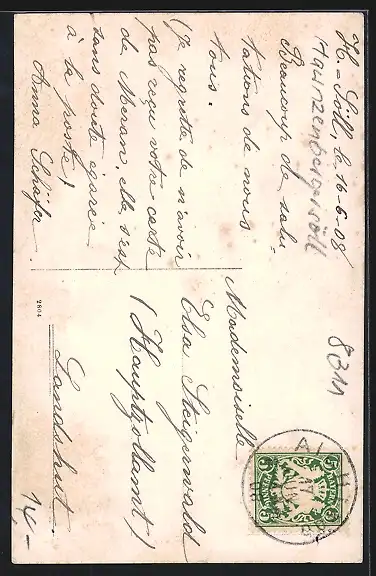 H-Söll, le 16-6-08
Haunzenbergersöll
Beaucoup de salu-
tations de nous
tous.
(Je regrette de n'avoir
pas reçu votre carte
de Meran, elle s'est
sans doute égarée
à la poste)
Anna Schäfer.
2804
Mademoiselle
Elsa Steigerwald
(Hauptzollamt)
Landshut.
8311
14,-
5 BAYERN 5